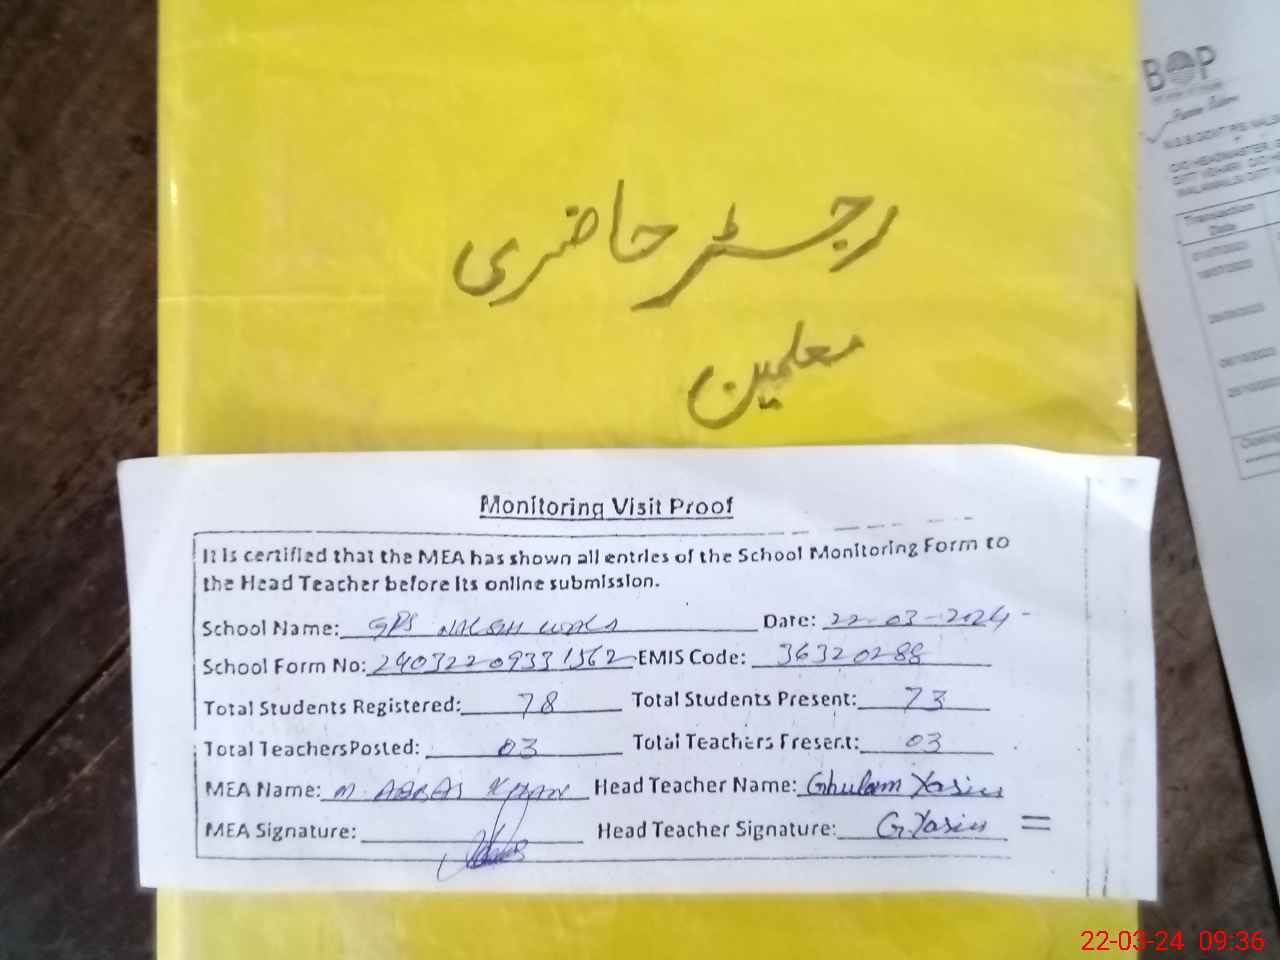 رجسٹر حاضری
معلمین
Monitoring Visit Proof
It is certified that the MEA has shown all entries of the School Monitoring Form to
the Head Teacher before its online submission.
School Name: GPS NALSH WALA Date: 22-03-2024
School Form No: 24032209331562 EMIS Code: 36320288
Total Students Registered: 78 Total Students Present: 73
Total Teachers Posted: 03 Total Teachers Present: 03
MEA Name: M. ABBAS KHAN Head Teacher Name: Ghulam Yasin
MEA Signature: Head Teacher Signature: G.Yasin
BOP
Transaction
Date
22-03-24 09:36